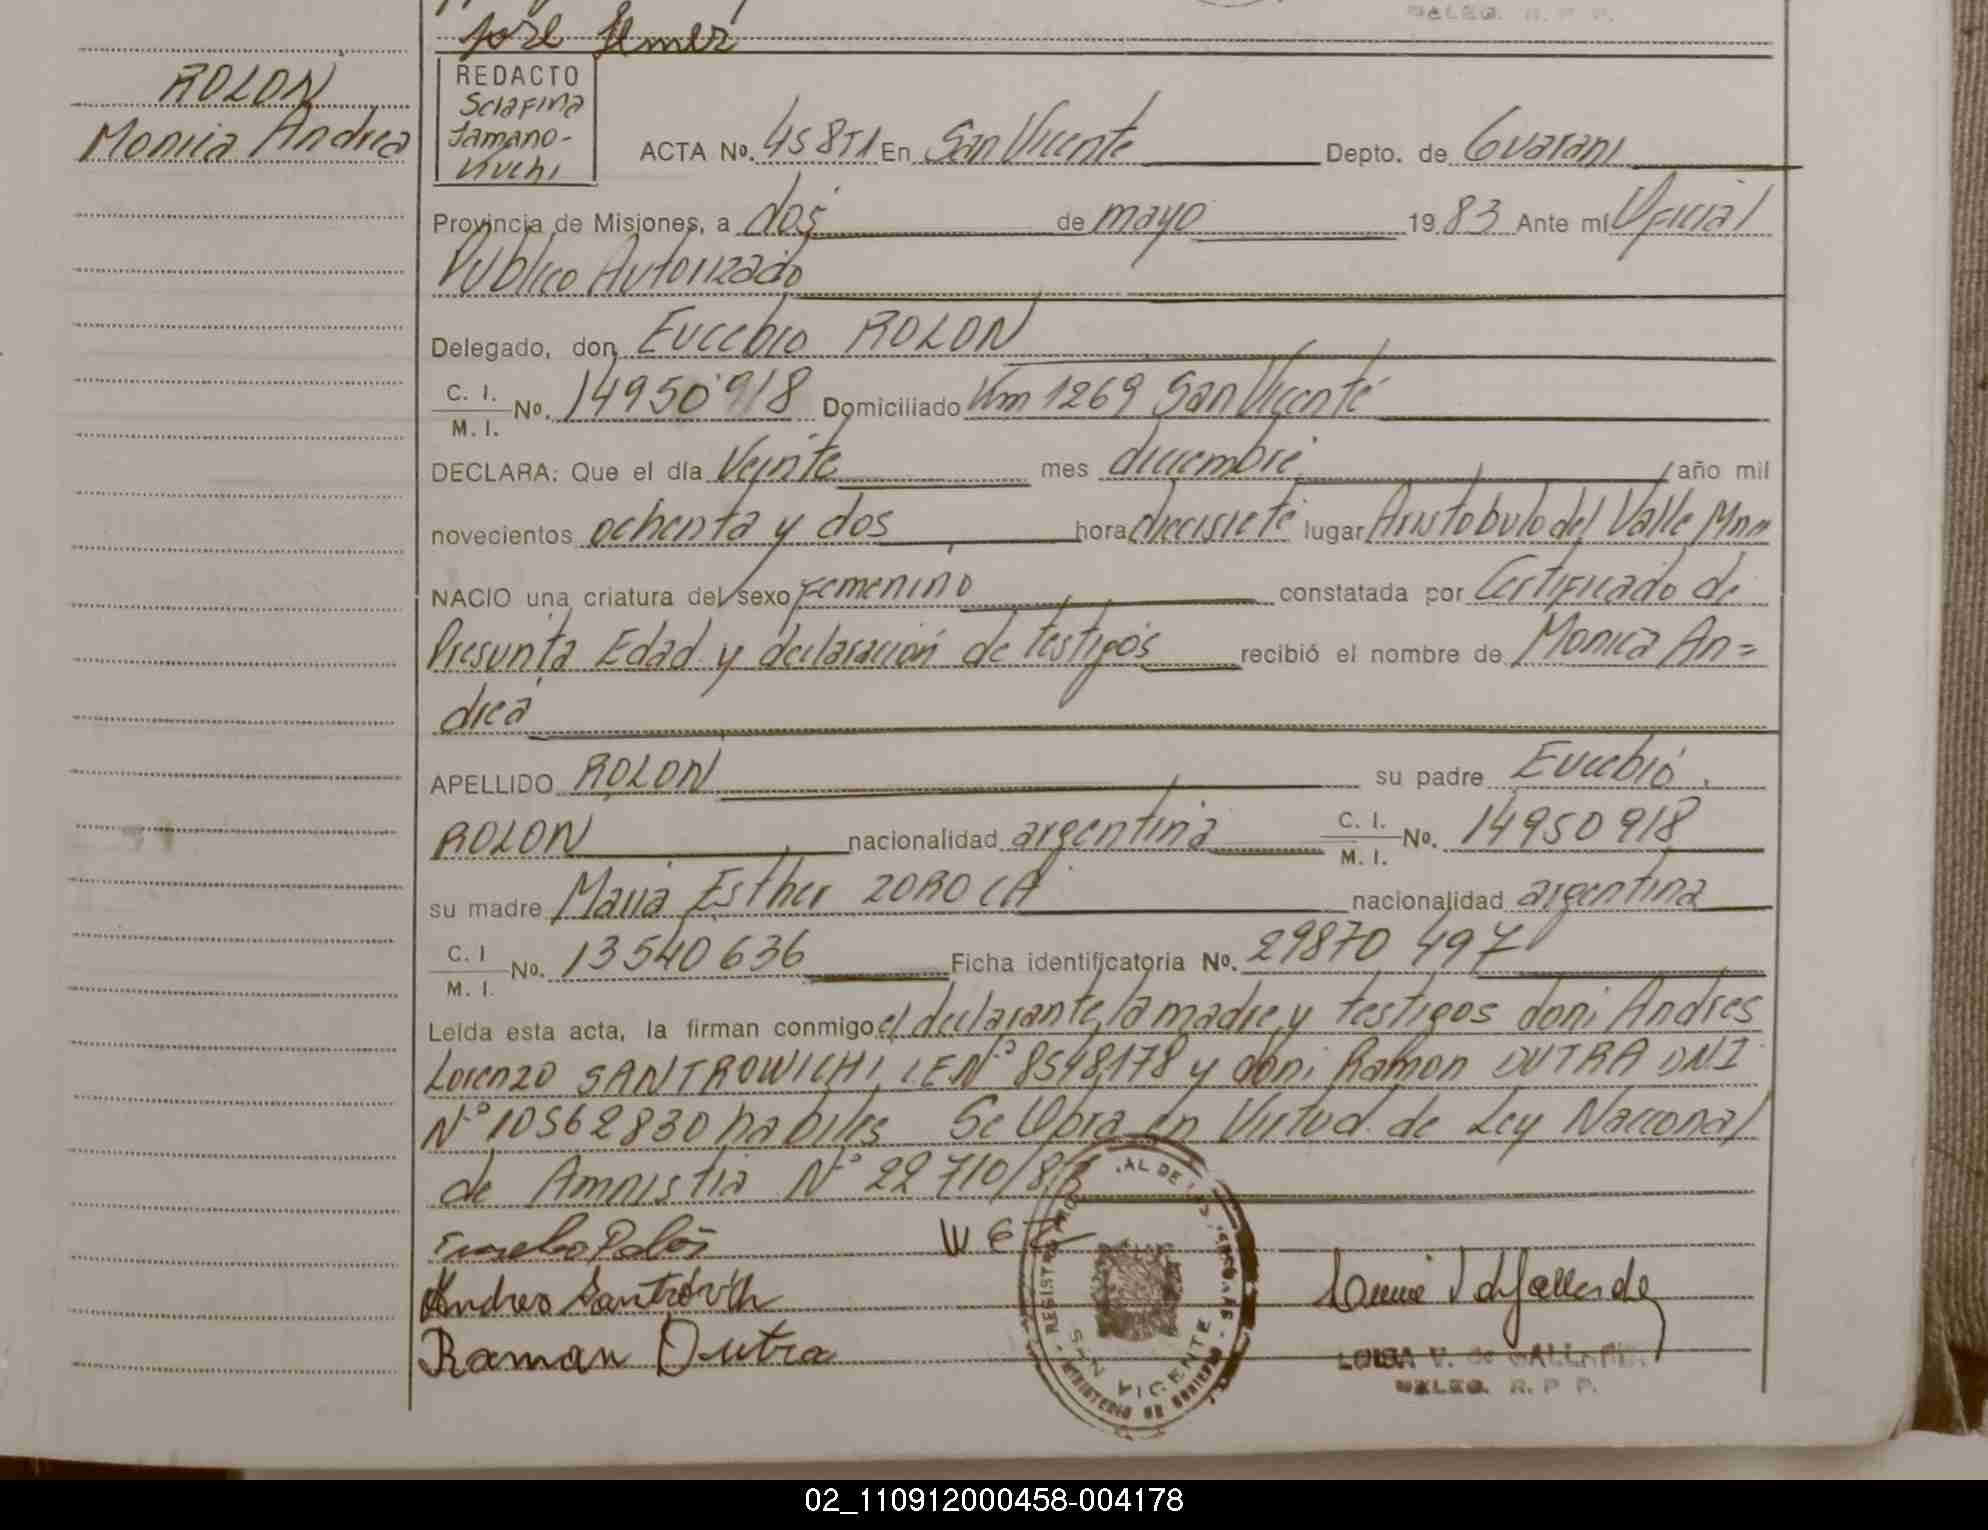 José
DELEG. R. P. P.
ROLON
Monica Andrea
REDACTO
Serafina
Jamano-
vivchi
ACTA No. 458 T1 En San Vicente Depto. de Guarani
Provincia de Misiones, a dos de mayo 1983 Ante mi Oficial
Publico Autorizado
Delegado, don Eucebio ROLON
C. I. M. I. No. 14950918 Domiciliado Km 1269 San Vicente
DECLARA: Que el día Veinte mes diciembre año mil
novecientos ochenta y dos hora diecisiete lugar Aristobulo del Valle Mnes
NACIO una criatura del sexo Femenino constatada por Certificado de
Presunta Edad y declaración de testigos recibió el nombre de Monica An=
drea
APELLIDO ROLON su padre Eucebio
ROLON nacionalidad argentina C. I. M. I. No. 14950918
su madre Maria Esther ZOROCA nacionalidad argentina
C. I M. I. No. 13540636 Ficha identificatoria No. 29870 497
Leída esta acta, la firman conmigo el declarante, la madre y testigos don: Andres
Lorenzo SANTROWICHI, LE Nº 8548178 y don: Ramon DUTRA DNI
Nº 10562830 habiles Se Obra en Virtud de Ley Nacional
de Amnistia Nº 22710/83
Eusebio Rolon
Andres Santrovich
Raman Dutra
REGISTRO PROVINCIAL DE LAS PERSONAS
SAN VICENTE
MINISTERIO DE GOBIERNO
LUISA V. de GALLARDO
DELEG. R. P. P.
02_110912000458-004178